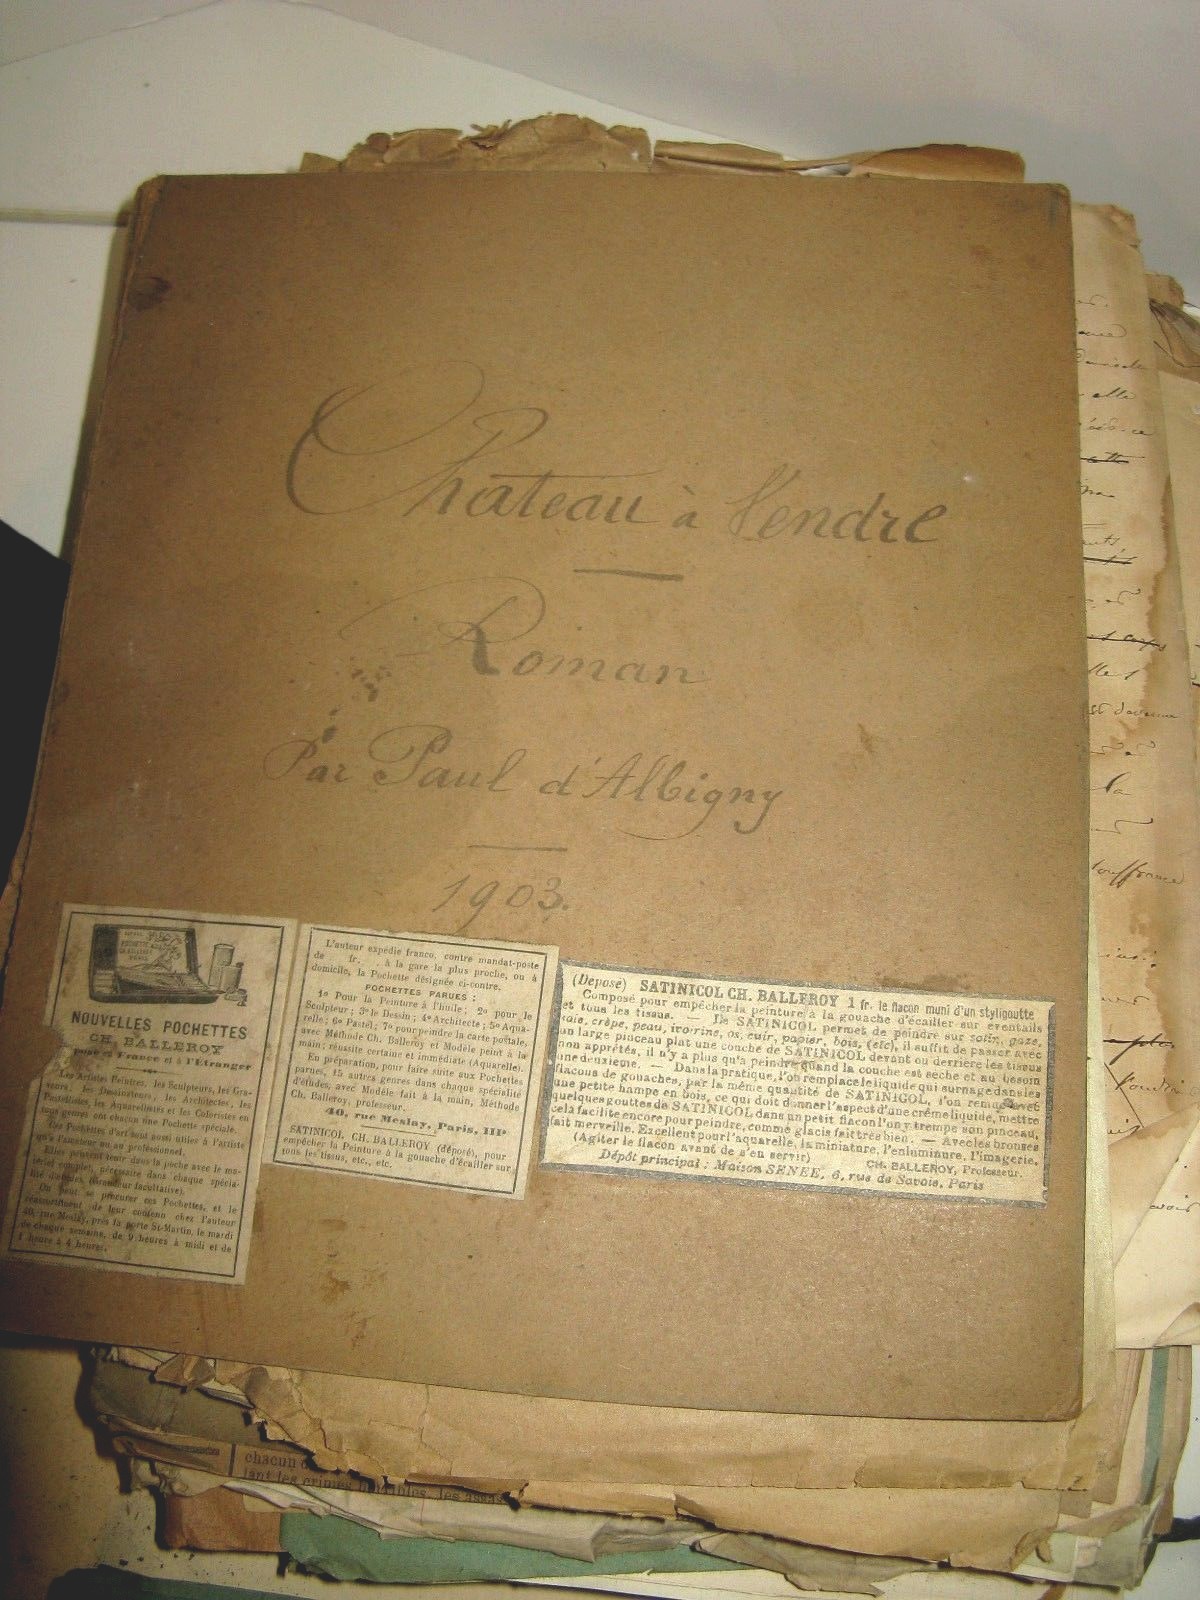 Château à Vendre
Roman
Par Paul d'Albigny
1903.
NOUVELLES POCHETTES
CH. BALLEROY
pour la France et à l'Étranger
Les Artistes Peintres, les Sculpteurs, les Gra-
veurs, les Dessinateurs, les Architectes, les
Pastellistes, les Aquarellistes et les Coloristes en
tous genres ont chacun une Pochette spéciale.
Ces Pochettes d'art sont aussi utiles à l'artiste
qu'à l'amateur ou au professionnel.
Elles peuvent tenir dans la poche avec le ma-
tériel complet, nécessaire dans chaque spécia-
lité d'études, (Grandeur facultative).
On peut se procurer ces Pochettes, et le
réassortiment de leur contenu chez l'auteur
40, rue Meslay, près la porte St-Martin, le mardi
de chaque semaine, de 9 heures à midi et de
1 heure à 4 heures.
L'auteur expédie franco, contre mandat-poste
de fr. à la gare la plus proche, ou à
domicile, la Pochette désignée ci-contre.
POCHETTES PARUES :
1º Pour la Peinture à l'huile; 2º pour le
Sculpteur; 3º le Dessin; 4º Architecte; 5º Aqua-
relle; 6º Pastel; 7º pour peindre la carte postale,
avec Méthode Ch. Balleroy et Modèle peint à la
main; réussite certaine et immédiate (Aquarelle).
En préparation, pour faire suite aux Pochettes
parues, 15 autres genres dans chaque spécialité
d'études, avec Modèle fait à la main, Méthode
Ch. Balleroy, professeur.
40, rue Meslay, Paris, IIIe
SATINICOL CH. BALLEROY (déposé), pour
empêcher la Peinture à la gouache d'écailler sur
tous les tissus, etc., etc.
(Déposé) SATINICOL CH. BALLEROY 1 fr. le flacon muni d'un styligoutte
Composé pour empêcher la peinture à la gouache d'écailler sur éventails
et tous les tissus. — Le SATINICOL permet de peindre sur satin, gaze,
soie, crêpe, peau, ivoirine, os, cuir, papier, bois, (etc), il suffit de passer avec
un large pinceau plat une couche de SATINICOL devant ou derrière les tissus
non apprêtés, il n'y a plus qu'à peindre quand la couche est sèche et au besoin
une deuxième. — Dans la pratique, l'on remplace le liquide qui surnage dans les
flacons de gouaches, par la même quantité de SATINICOL, l'on remue avec
une petite hampe en bois, ce qui doit donner l'aspect d'une crème liquide, mettre
quelques gouttes de SATINICOL dans un petit flacon l'on y trempe son pinceau,
cela facilite encore pour peindre, comme glacis fait très bien. — Avec les bronzes
fait merveille. Excellent pour l'aquarelle, la miniature, l'enluminure, l'imagerie.
(Agiter le flacon avant de s'en servir) CH. BALLEROY, Professeur.
Dépôt principal : Maison SENÉE, 6, rue de Savoie, Paris
elle
la
souffrance
chacun
les crimes